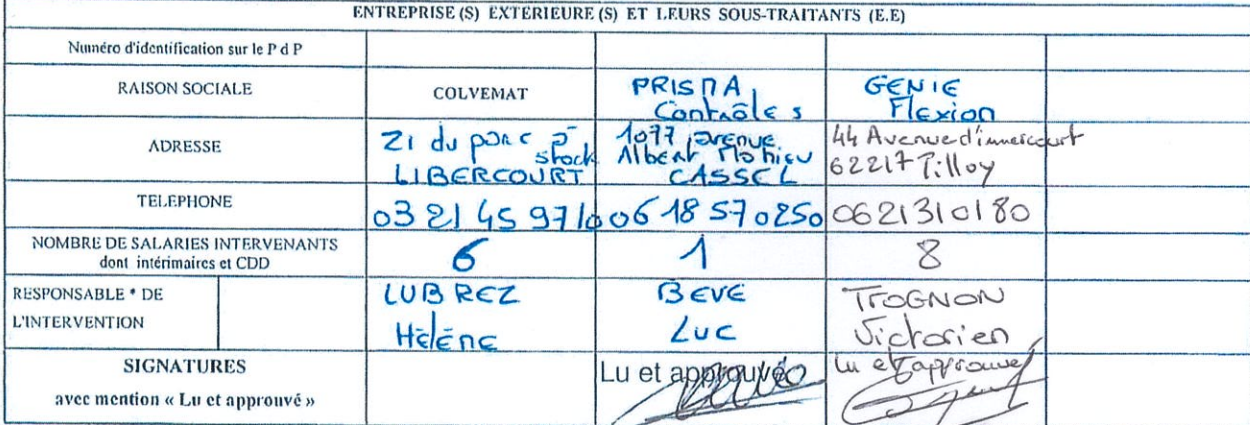 ENTREPRISE (S) EXTERIEURE (S) ET LEURS SOUS-TRAITANTS (E.E)
Numéro d'identification sur le P d P
RAISON SOCIALE COLVEMAT PRISMA Contrôles GENIE Flexion
ADRESSE ZI du parc à stock LIBERCOURT 1077 avenue Albert Mahieu CASSEL 44 Avenue d'immercourt 62217 Tilloy
TELEPHONE 03 21 45 97 10 06 18 57 02 50 0621310180
NOMBRE DE SALARIES INTERVENANTS dont intérimaires et CDD 6 1 8
RESPONSABLE * DE L'INTERVENTION LUBREZ Hélène BEVE Luc TROGNON Victorien
SIGNATURES avec mention « Lu et approuvé » Lu et approuvé Lu et approuvé